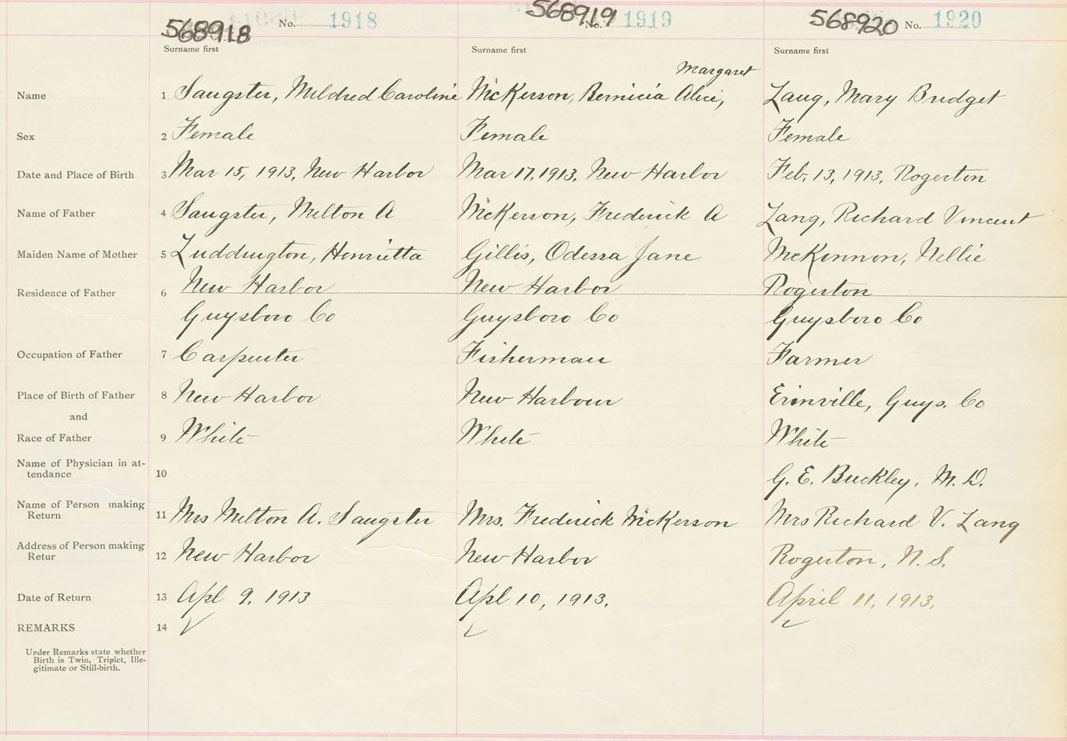 568918 No. 1918 568919 No. 1919 568920 No. 1920
Surname first Surname first Surname first
Margaret
Name 1 Sangster, Mildred Caroline McKerson, Bernicia Alice, Lang, Mary Bridget
Sex 2 Female Female Female
Date and Place of Birth 3 Mar 15, 1913, New Harbor Mar 17, 1913, New Harbor Feb. 13, 1913, Rogerton
Name of Father 4 Sangster, Milton A McKerson, Frederick A Lang, Richard Vincent
Maiden Name of Mother 5 Luddington, Henrietta Gillis, Odessa Jane McKinnon, Nellie
Residence of Father 6 New Harbor New Harbor Rogerton
Guysboro Co Guysboro Co Guysboro Co
Occupation of Father 7 Carpenter Fisherman Farmer
Place of Birth of Father 8 New Harbor New Harbour Erinville, Guys. Co
and
Race of Father 9 White White White
Name of Physician in at-
tendance 10 G. E. Buckley, M. D.
Name of Person making
Return 11 Mrs Milton A. Sangster Mrs. Frederick McKerson Mrs Richard V. Lang
Address of Person making
Retur 12 New Harbor New Harbor Rogerton, N. S.
Date of Return 13 Apl 9, 1913 Apl 10, 1913. April 11, 1913.
REMARKS 14 ✓ ✓ ✓
Under Remarks state whether
Birth is Twin, Triplet, Ille-
gitimate or Still-birth.